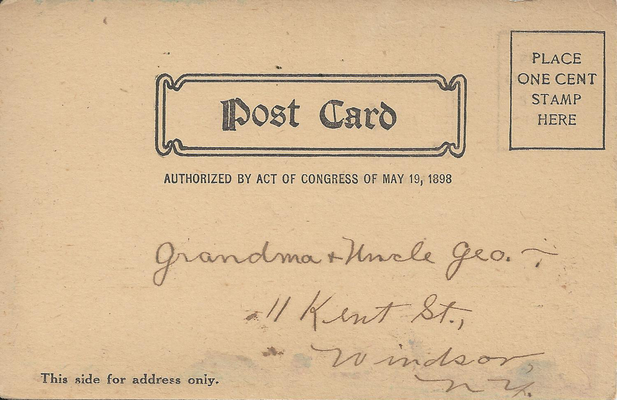 Post Card
PLACE
ONE CENT
STAMP
HERE
AUTHORIZED BY ACT OF CONGRESS OF MAY 19, 1898
Grandma + Uncle Geo.
11 Kent St.,
Windsor,
N.Y.
This side for address only.